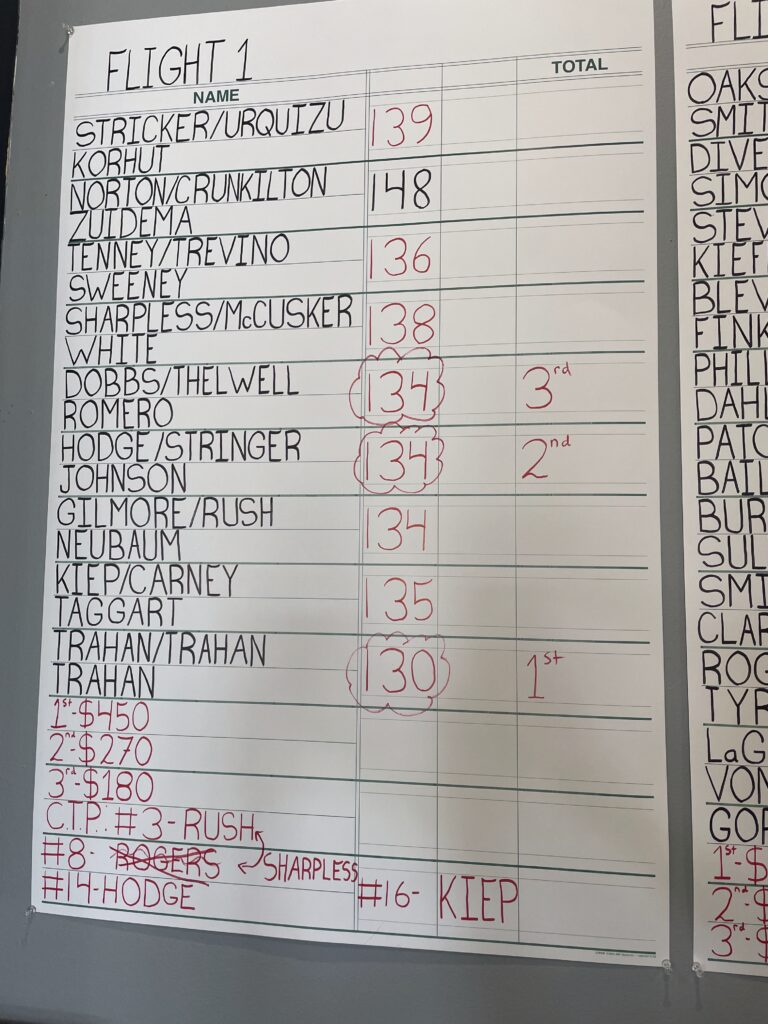 FLIGHT 1
NAME TOTAL
STRICKER/URQUIZU 139
KORHUT
NORTON/CRUNKILTON 148
ZUIDEMA
TENNEY/TREVINO 136
SWEENEY
SHARPLESS/McCUSKER 138
WHITE
DOBBS/THELWELL 134 3rd
ROMERO
HODGE/STRINGER 134 2nd
JOHNSON
GILMORE/RUSH 134
NEUBAUM
KIEP/CARNEY 135
TAGGART
TRAHAN/TRAHAN 130 1st
TRAHAN
1st-$450
2nd-$270
3rd-$180
C.T.P.: #3-RUSH
#8- ROGERS SHARPLESS
#14-HODGE #16- KIEP
FLI
OAKS
SMIT
DIVE
SIMO
STEV
KIEF
BLEV
FINK
PHILL
DAHL
PAIC
BAIL
BUR
SUL
SMI
CLAR
ROG
TYR
LaG
VON
GOR
1st-$
2nd-$
3rd-$